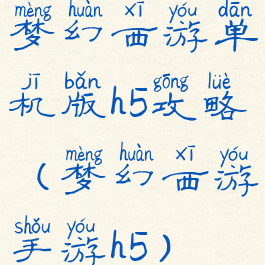 mèng huàn xī yóu dān
梦幻西游单
jī bǎn gōng lüè
机版h5攻略
mèng huàn xī yóu
（梦幻西游
shǒu yóu
手游h5）